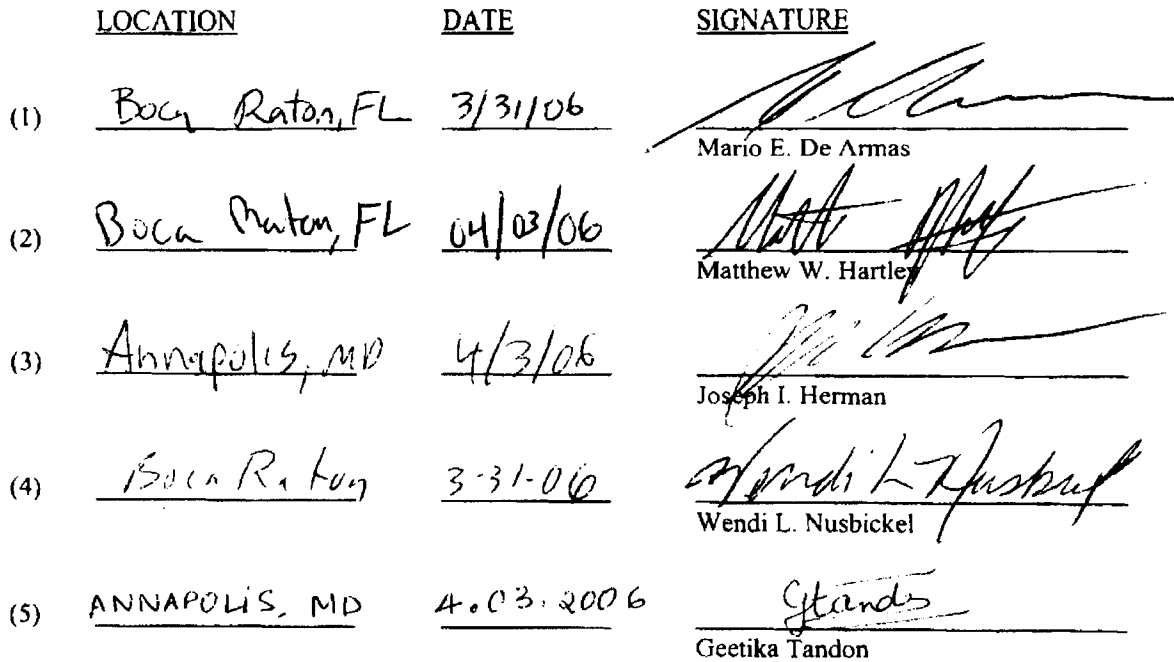 LOCATION DATE SIGNATURE
(1) Boca Raton, FL 3/31/06
Mario E. De Armas
(2) Boca Raton, FL 04/03/06 Matt
Matthew W. Hartley
(3) Annapolis, MD 4/3/06
Joseph I. Herman
(4) Boca Raton 3-31-06 Wendi L Nusbickel
Wendi L. Nusbickel
(5) ANNAPOLIS, MD 4.03.2006
Geetika Tandon